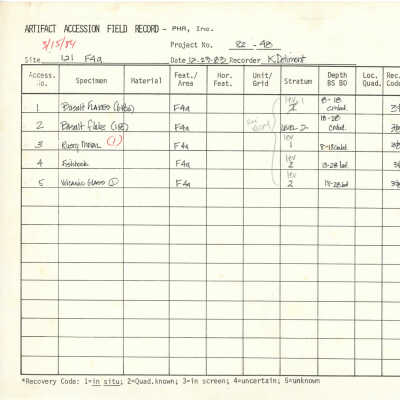 ARTIFACT ACCESSION FIELD RECORD - PHA, Inc.
3/15/84
Project No. 82 - 48
Site 121 F4a Date 12-29-83 Recorder K. Detriment
Access. No. Specimen Material Feat./ Area Hor. Feat. Unit/ Grid Stratum Depth BS BD Loc. Quad. Rec. Code
1 Basalt Flakes F4a lev 1 8-18 cmbd
2 Basalt Flake F4a LEVEL 2 18-28 cmbd
3 Rusty Metal (1) F4a lev 1 8-18cmbd
4 Fishhook F4a lev 2 18-28 bd
5 Volcanic Glass (1) F4a lev 2 18-28 bd
*Recovery Code: 1=in situ; 2=Quad.known; 3=in screen; 4=uncertain; 5=unknown